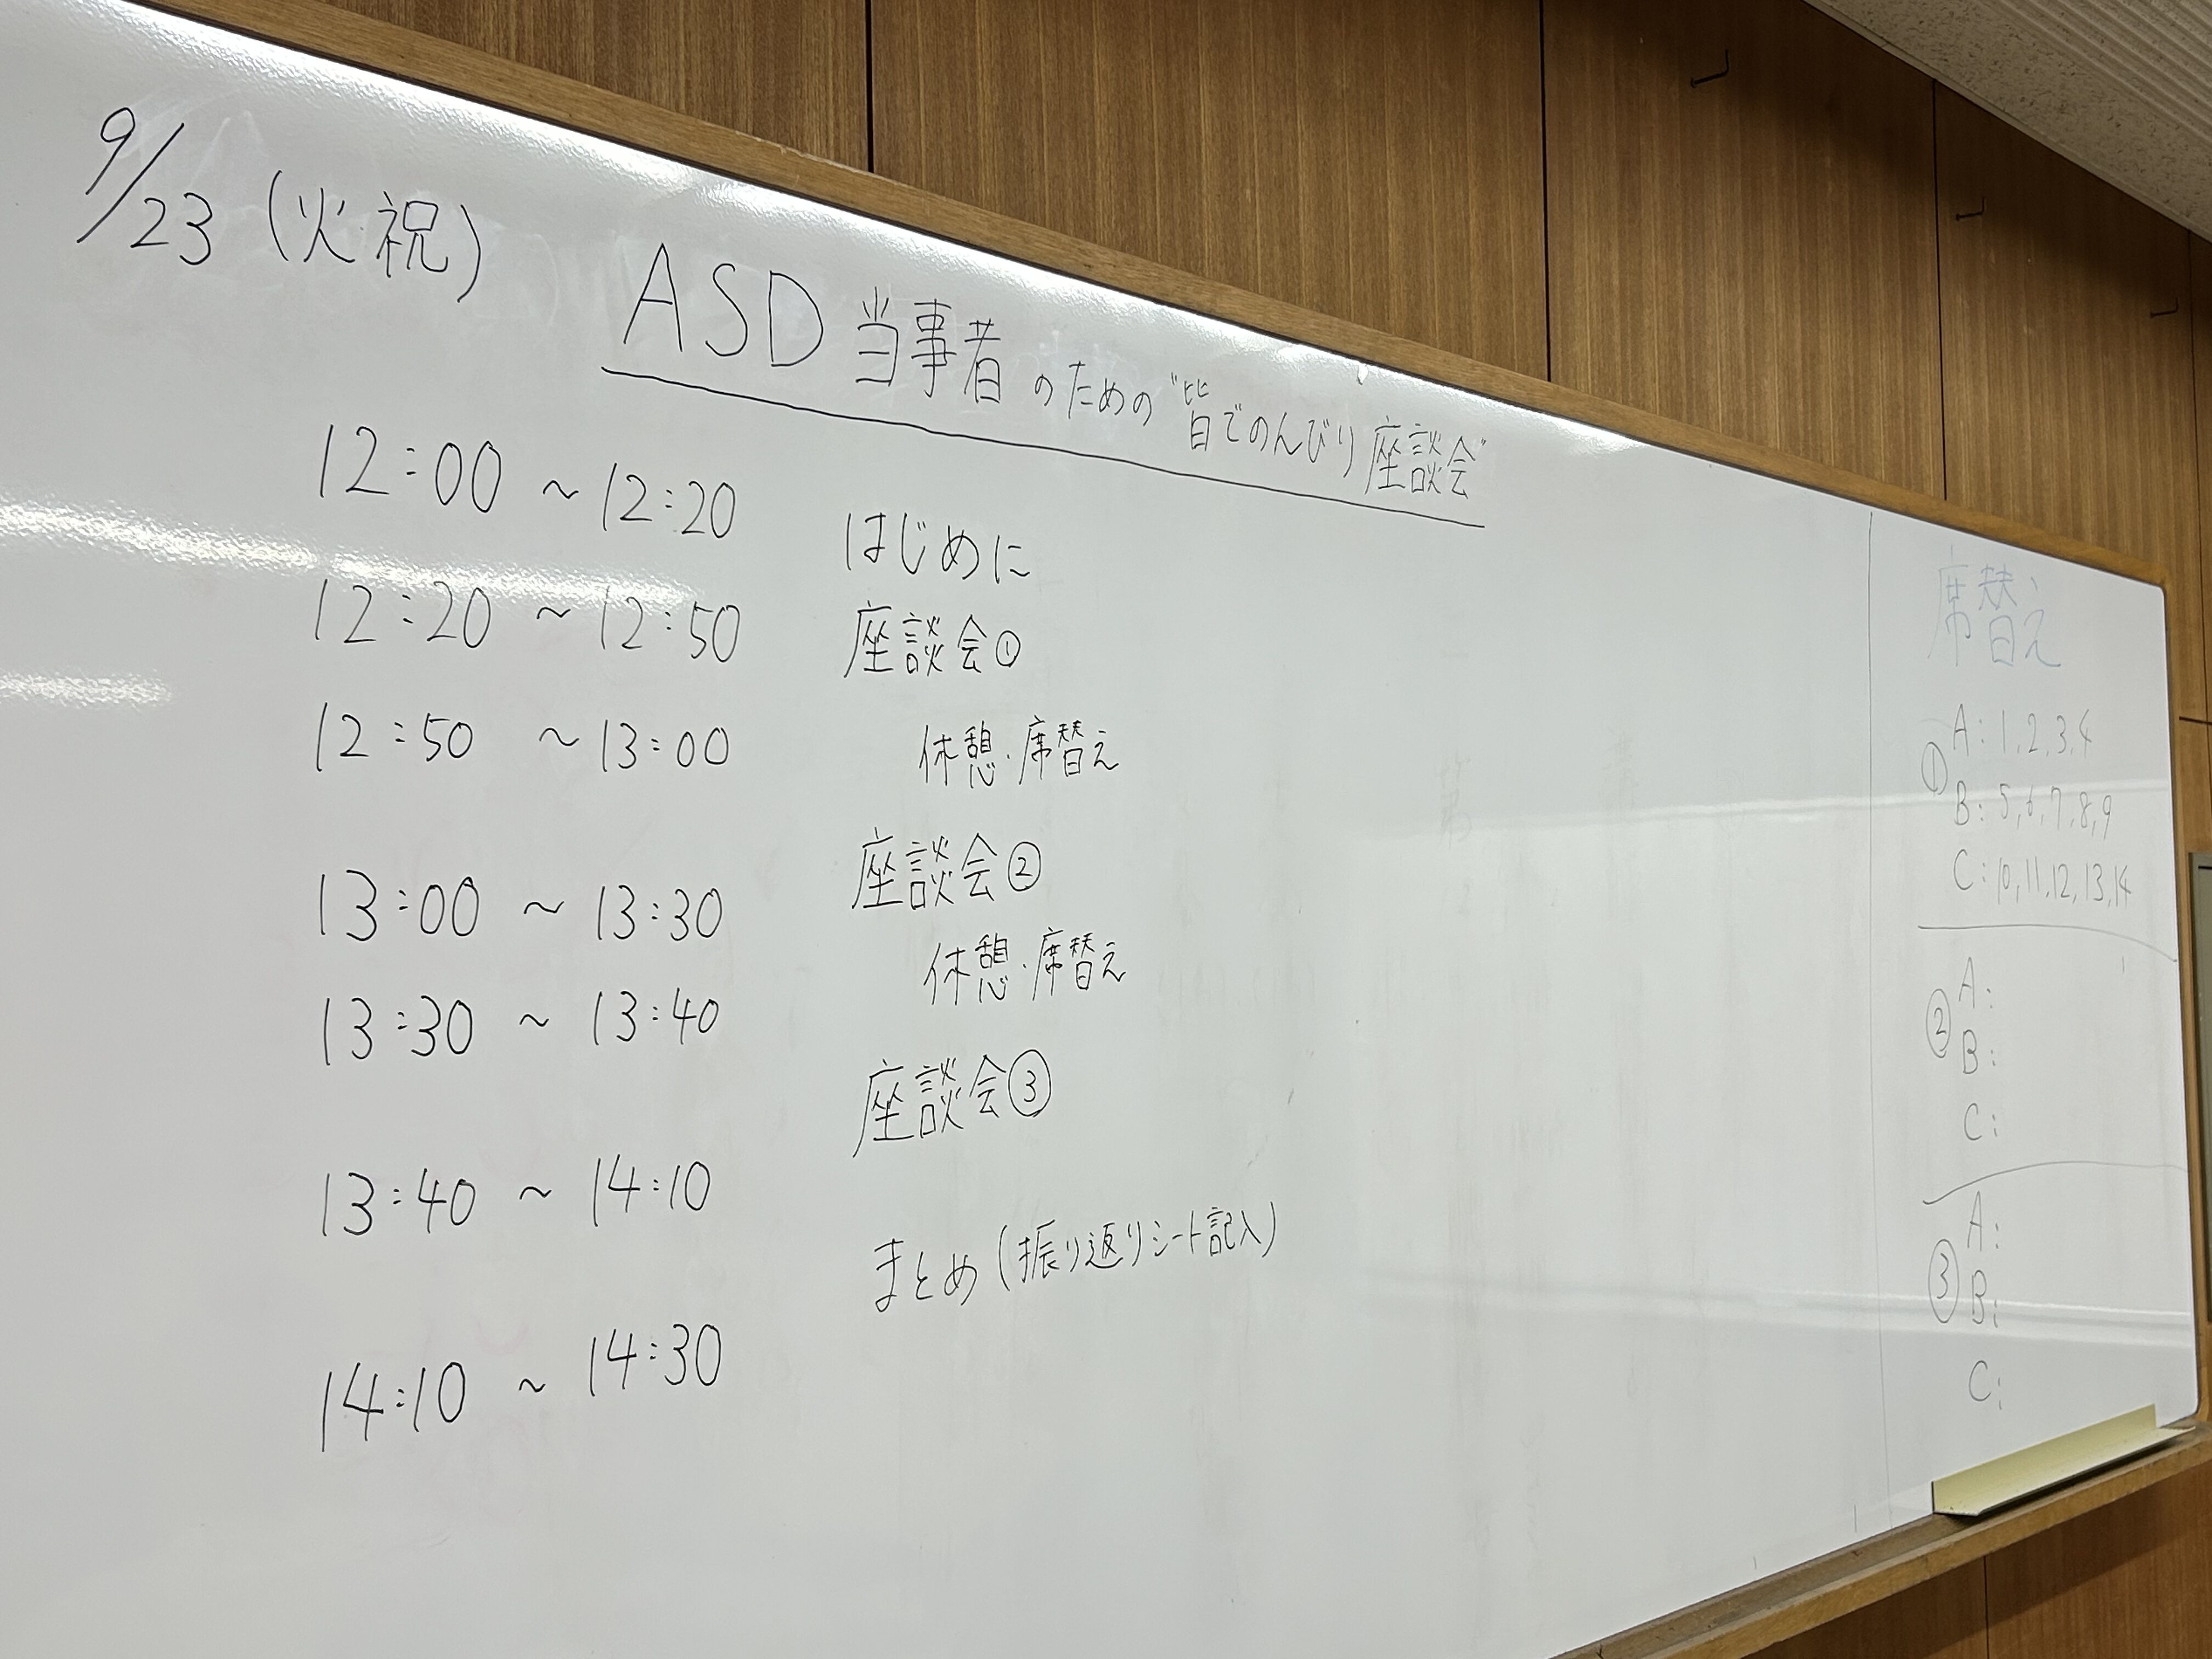 9/23(火・祝)
ASD当事者のための"皆でのんびり座談会"
12:00 ~ 12:20 はじめに
12:20 ~ 12:50 座談会①
12:50 ~ 13:00 休憩・席替え
13:00 ~ 13:30 座談会②
13:30 ~ 13:40 休憩・席替え
13:40 ~ 14:10 座談会③
14:10 ~ 14:30 まとめ(振り返りシート記入)
席替え
① A: 1, 2, 3, 4
B: 5, 6, 7, 8, 9
C: 10, 11, 12, 13, 14
② A:
B:
C:
③ A:
B:
C: